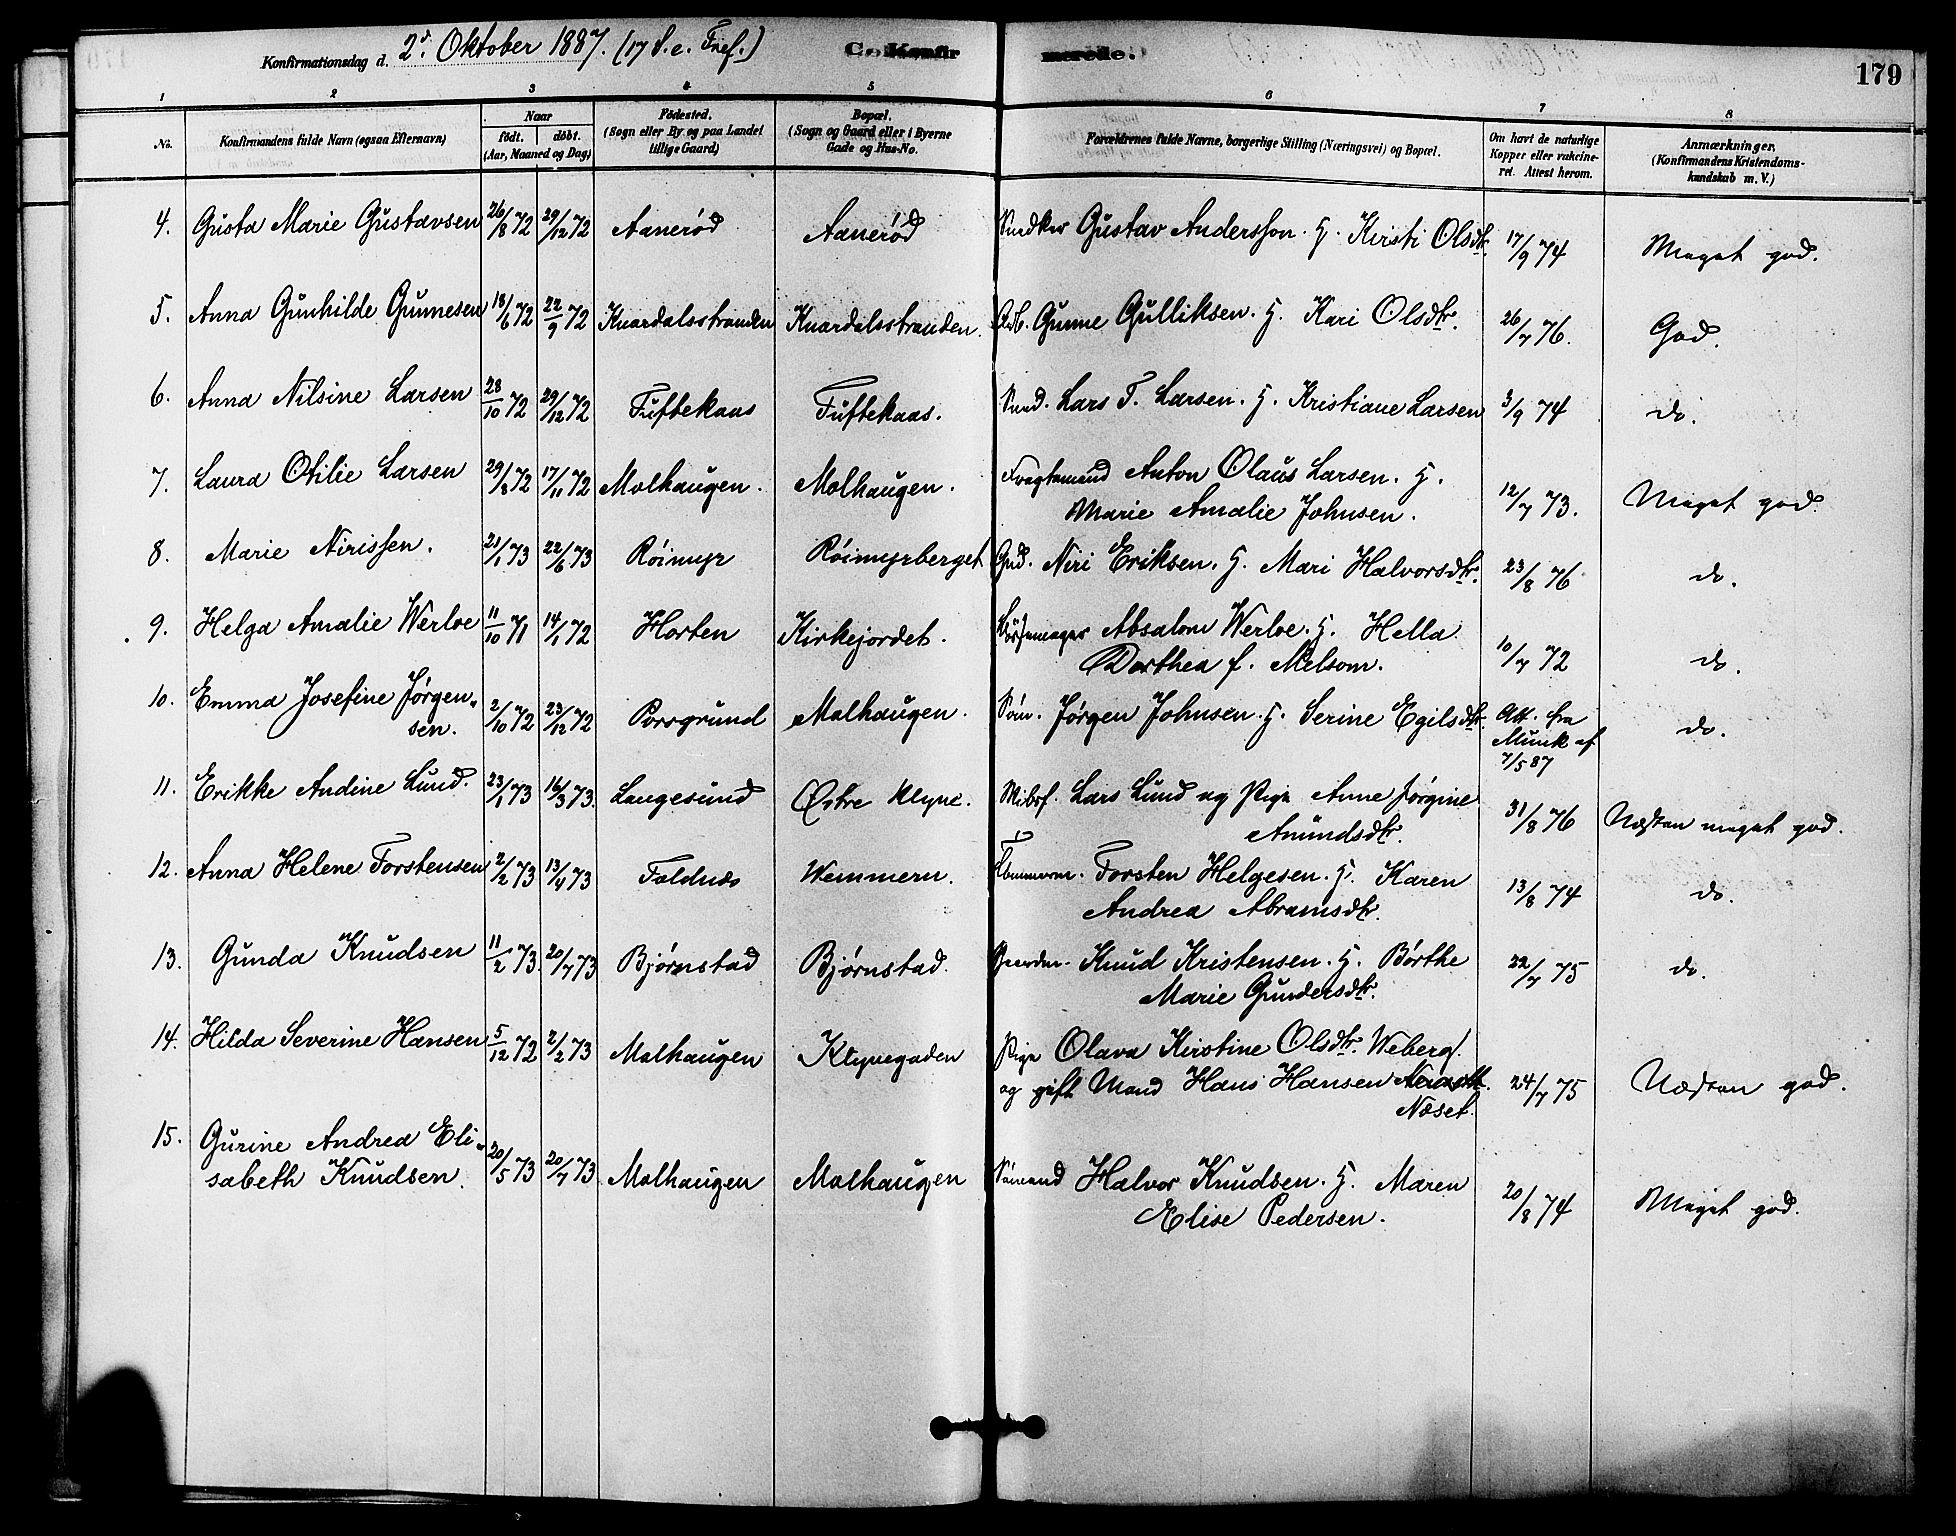 Konfirmationsdag d. 2d. Oktober 1887. (17 S. e. Tref.) C. Konfir merede. 179
1 2 3 4 5 6 7 8
No. Konfirmandens fulde Navn (ogsaa Efternavn) Naar født. døbt. (Aar, Maaned og Dag) Fødested. (Sogn eller By og paa Landet tillige Gaard) Bopæl. (Sogn og Gaard eller i Byerne Gade og Hus-No. Forældrenes fulde Navne, borgerlige Stilling (Næringsvei) og Bopæl. Om havt de naturlige Kopper eller vakcineret. Attest herom. Anmærkninger. (Konfirmandens Kristendomskundskab m. V.)
4. Gusta Marie Gustavsen 26/8 72 29/12 72 Aanerød Aanerød Snedker Gustav Andersson. H. Kirsti Olsdtr. 17/9 74 Meget god.
5. Anna Gunhilde Gunnesen 18/6 72 22/9 72 Knardalsstranden Knardalsstranden. Arb. Gunne Gulliksen. H. Kari Olsdtr. 26/7 76. God.
6. Anna Nilsine Larsen 28/10 72 29/12 72 Tuftekaas Tuftekaas. Sned. Lars T. Larsen. H. Kristiane Larsen 3/9 74 do.
7. Laura Otilie Larsen 29/8 72 17/11 72 Molhaugen. Molhaugen. Fragtemand Anton Olaus Larsen. H.
Marie Amalie Johnsen. 12/7 73. Meget god.
8. Marie Nirissen. 21/1 73 22/6 73 Röimyr Röimyrberget Gud. Niri Eriksen. H. Mari Halvorsdtr. 23/8 76 do.
9. Helga Amalie Werloe 11/10 71 14/1 72 Horten Kirkejordet. Absalom Werloe. H. Hella
Dorthea f. Melsom. 10/7 72 do.
10. Emma Josefine Jørgen-
sen. 2/10 72 23/12 72 Porsgrund Molhaugen. Söm. Jørgen Johnsen. H. Serine Egilsdtr. Att. fra
Munk af
7/5 87 do.
11. Erikke Andine Lund. 23/1 73 16/3 73. Langesund Østre Klyve. Lars Lund og Pige Anne Jørgine
Amundsdtr. 31/8 76 Næsten meget god.
12. Anna Helene Torstensen 2/2 73 13/4 73 Foldnæs Wemmern. Tømmerm. Torsten Helgesen. H. Karen
Andrea Abramsdtr. 13/8 74 do.
13. Gunda Knudsen 11/2 73. 20/7 73 Bjørnstad Bjørnstad. Knud Kristensen. H. Börthe
Marie Gundersdtr. 22/7 75 do.
14. Hilda Severine Hansen 5/12 72 2/2 73 Molhaugen Klyvegaden Pige Olava Kirstine Olsdtr. Weberg.
og gift Mand Hans Hansen
Næset. 24/7 75 Næsten god.
15. Gurine Andrea Eli-
sabeth Knudsen. 20/5 73 20/7 73 Molhaugen Molhaugen Sömand Halvor Knudsen. H. Maren
Elise Pedersen. 20/8 74 Meget god.